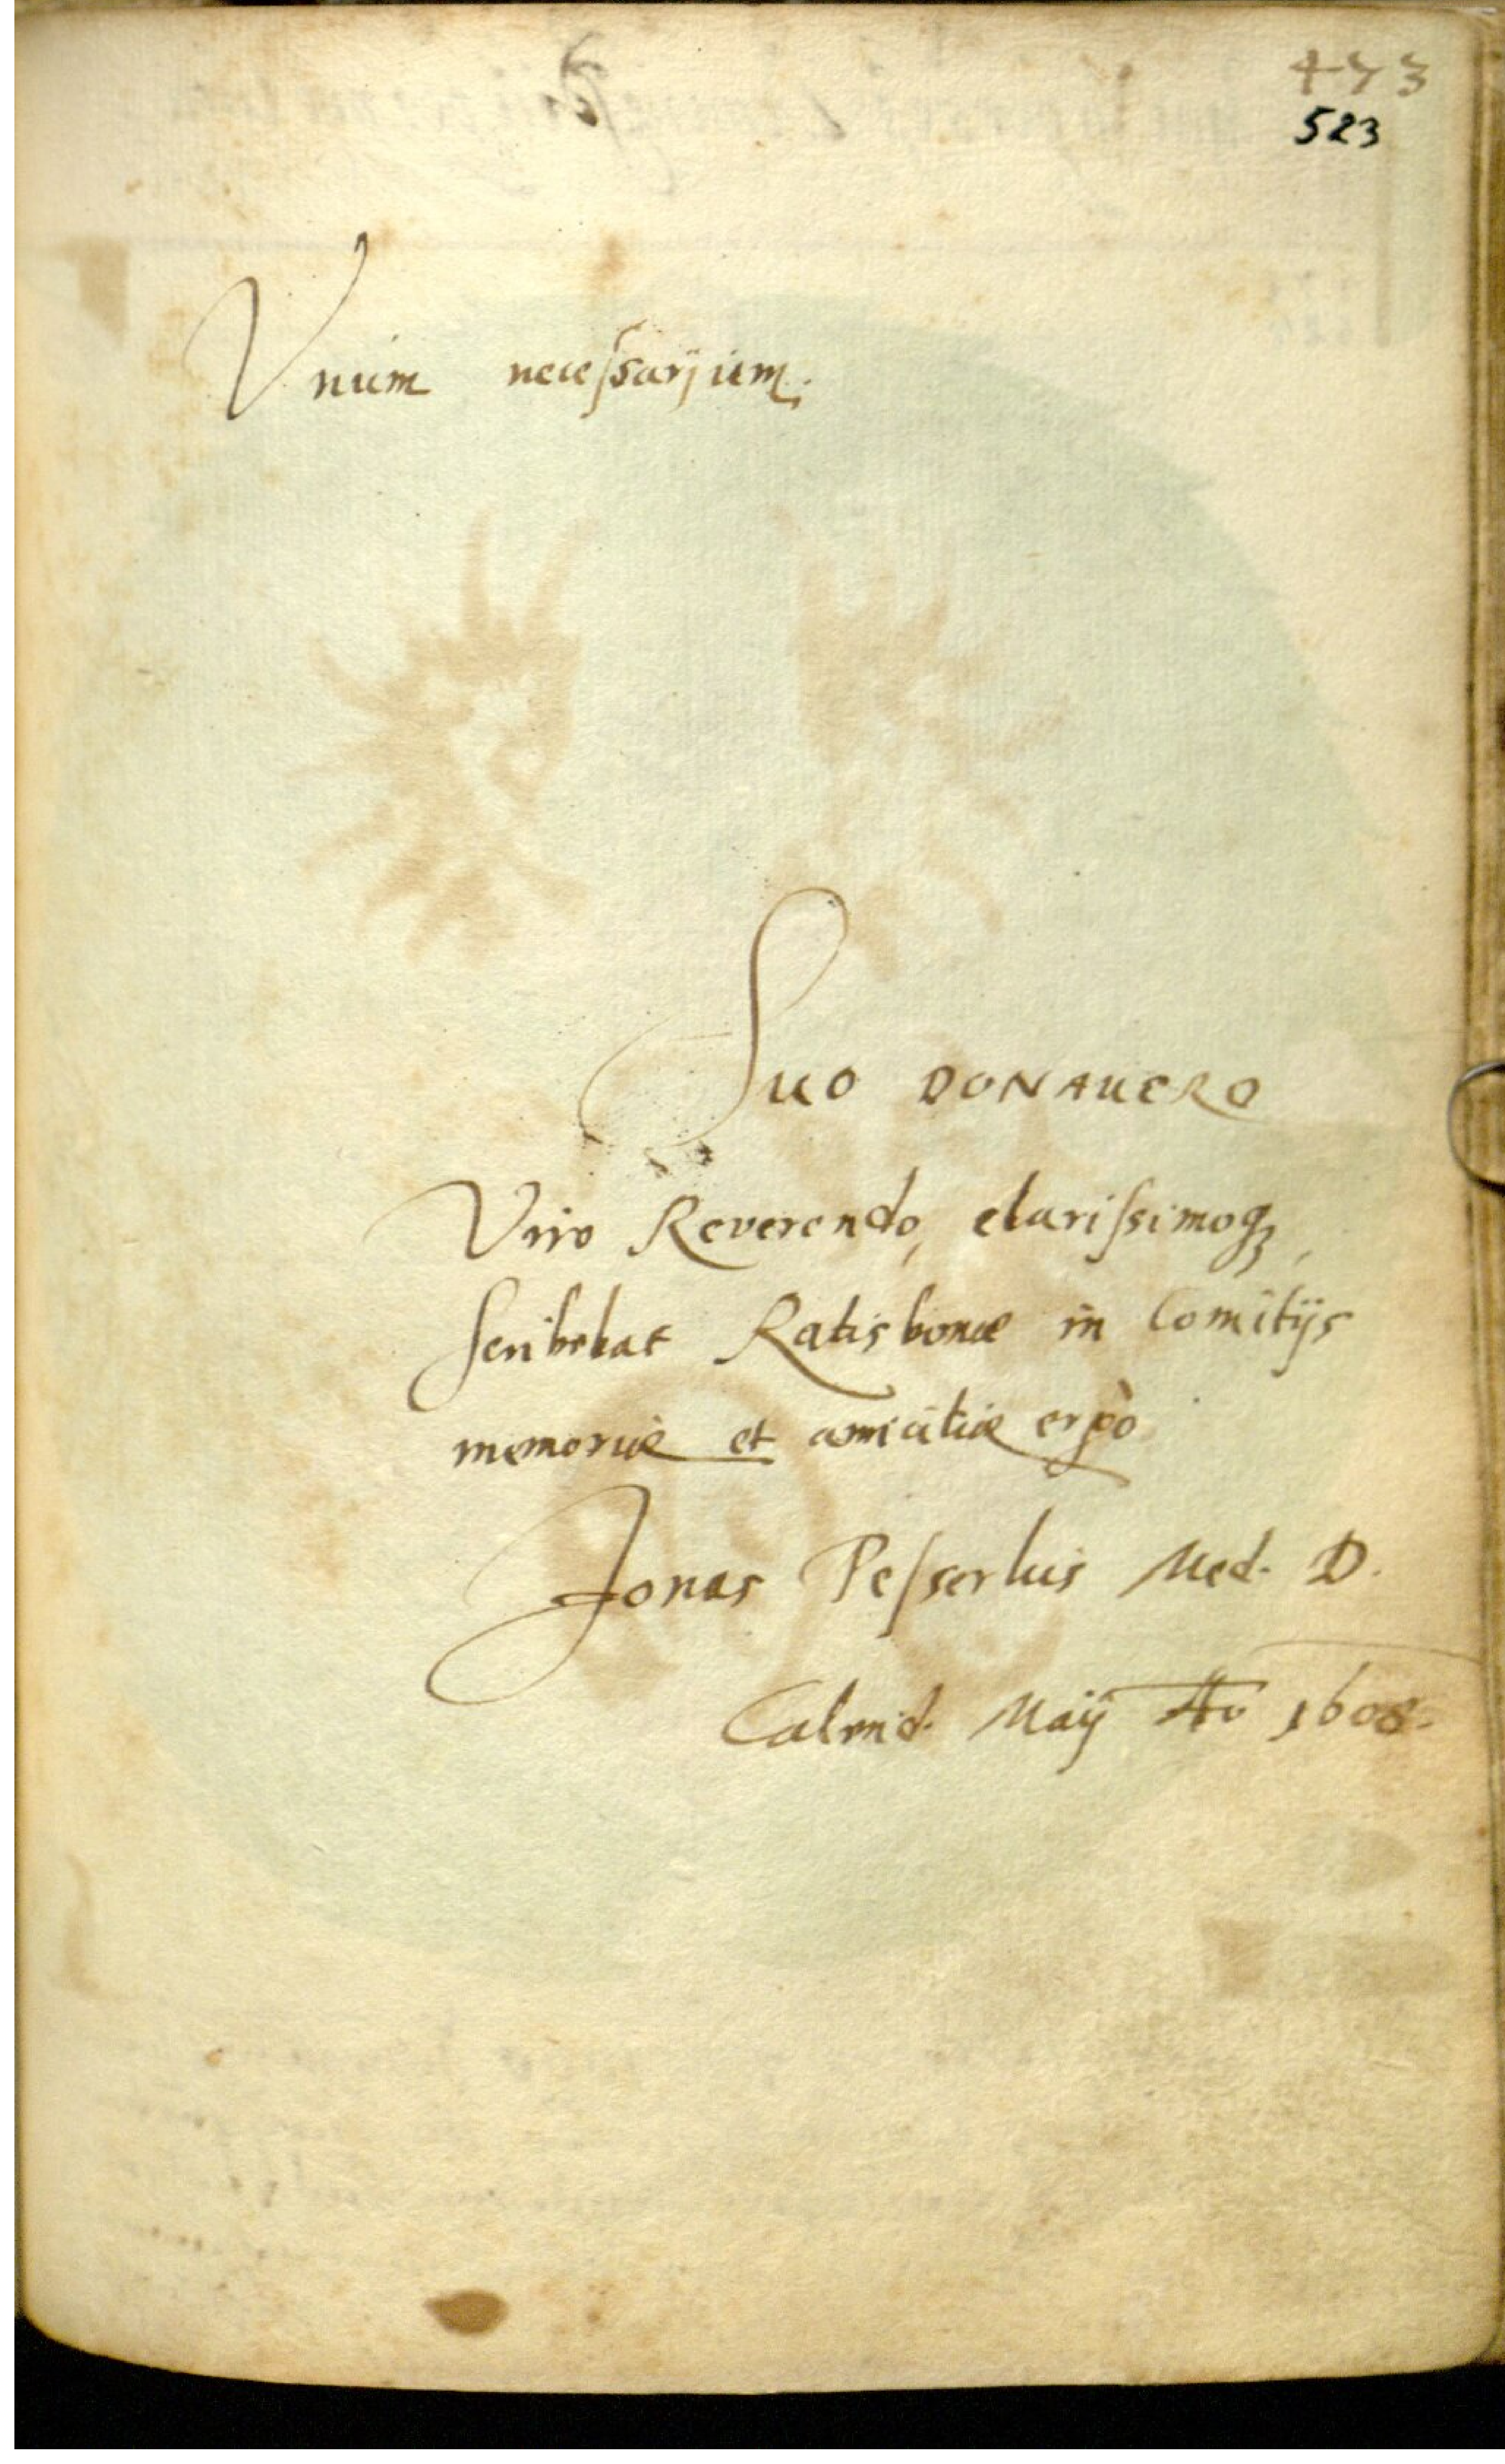 473
523
Vnum necessarium.
Suo DONAUERO
Viro Reverendo, clarissimoq₃,
scribebat Ratisbonæ in Comitijs
memoriæ et amicitiæ ergò
Jonas Pesserlus Med. D.
Calend. Maij Ao 1608.